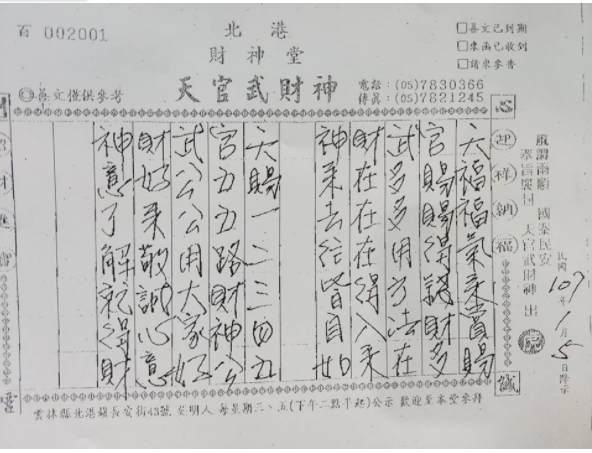 百 002001
北港
財神堂
天官武財神
◎善文僅供參考
電話：(05)7830366
傳真：(05)7821245
□善文已到期
□來函已收到
□請來參香
心
誠
迎祥納福
國泰民安
天官武財神 出
民國107年1月5日降示
天福福氣來賞賜
官賜賜得錢財多
武多多用方法在
財在在在得入來
神來去往皆自如
天賜一二三四五
官五五路財神公
武公公用大家好
財好來敬誠心意
神意了解就得財
招財進寶
雲林縣北港鎮長安街43號 每星期三、五(下午二點半起)公示 歡迎至本堂參拜